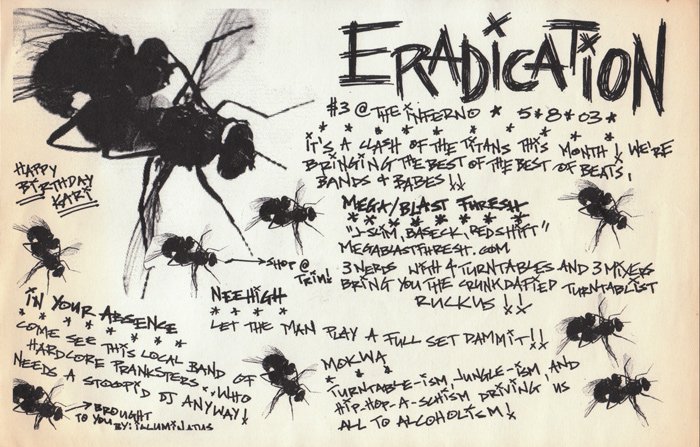 ERADICATION
#3 @ THE INFERNO * 5*8*03*
* * * * * * * * *
IT'S A CLASH OF THE TITANS THIS MONTH! WE'RE
BRINGING THE BEST OF THE BEST OF BEATS,
BANDS & BABES!!
HAPPY
BIRTHDAY
KARI
MEGA/BLAST THRESH
* * * * * * *
"J-SLIM, BASECK, REDSHIFT"
MEGABLASTTHRESH.COM
3 NERDS WITH 4 TURNTABLES AND 3 MIXERS
BRING YOU THE CRUNKDAFIED TURNTABLIST
RUCKUS!!
→ SHOT @
TRIN!
NEEHIGH
* * * *
LET THE MAN PLAY A FULL SET DAMMIT!!
IN YOUR ABSENCE
* * * * * *
COME SEE THIS LOCAL BAND OF
HARDCORE PRANKSTERS.. WHO
NEEDS A STOOPID DJ ANYWAY!
MOKWA
* * * *
TURNTABLE-ISM, JUNGLE-ISM AND
HIP-HOP-A-SCHISM DRIVING US
ALL TO ALCOHOLISM!
→ BROUGHT
TO YOU
BY: ILLUMINATUS